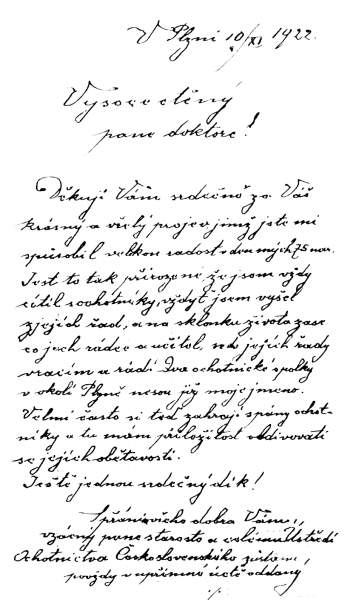 V Plzni 10/XI 1922.
Vysocectěný
pane doktore!
Děkuji Vám srdečně za Váš
krásný a vřelý projev jímž jste mi
způsobil velkou radost v den mých 75 nar.
Jest to tak přirozené že jsem vždy
cítil s ochotníky, vždyt jsem vyšel
z jejich řad, a na sklonku života zase
co jich rádce a učitel, se do jejich řady
vracím a rád! Dva ochotnické spolky
v okolí Plzně nesou již moje jmeno.
Velmi často si teď zahraji s pány ochot-
níky a tu mám příležitost obdivovati
se jejich obětavosti.
Ještě jednou srdečný dík!
Přání všeho dobra Vám,
vzácný pane starosto a celému Ústředí
Ochotnictva Československého
povždy v upřímné úctě oddaný